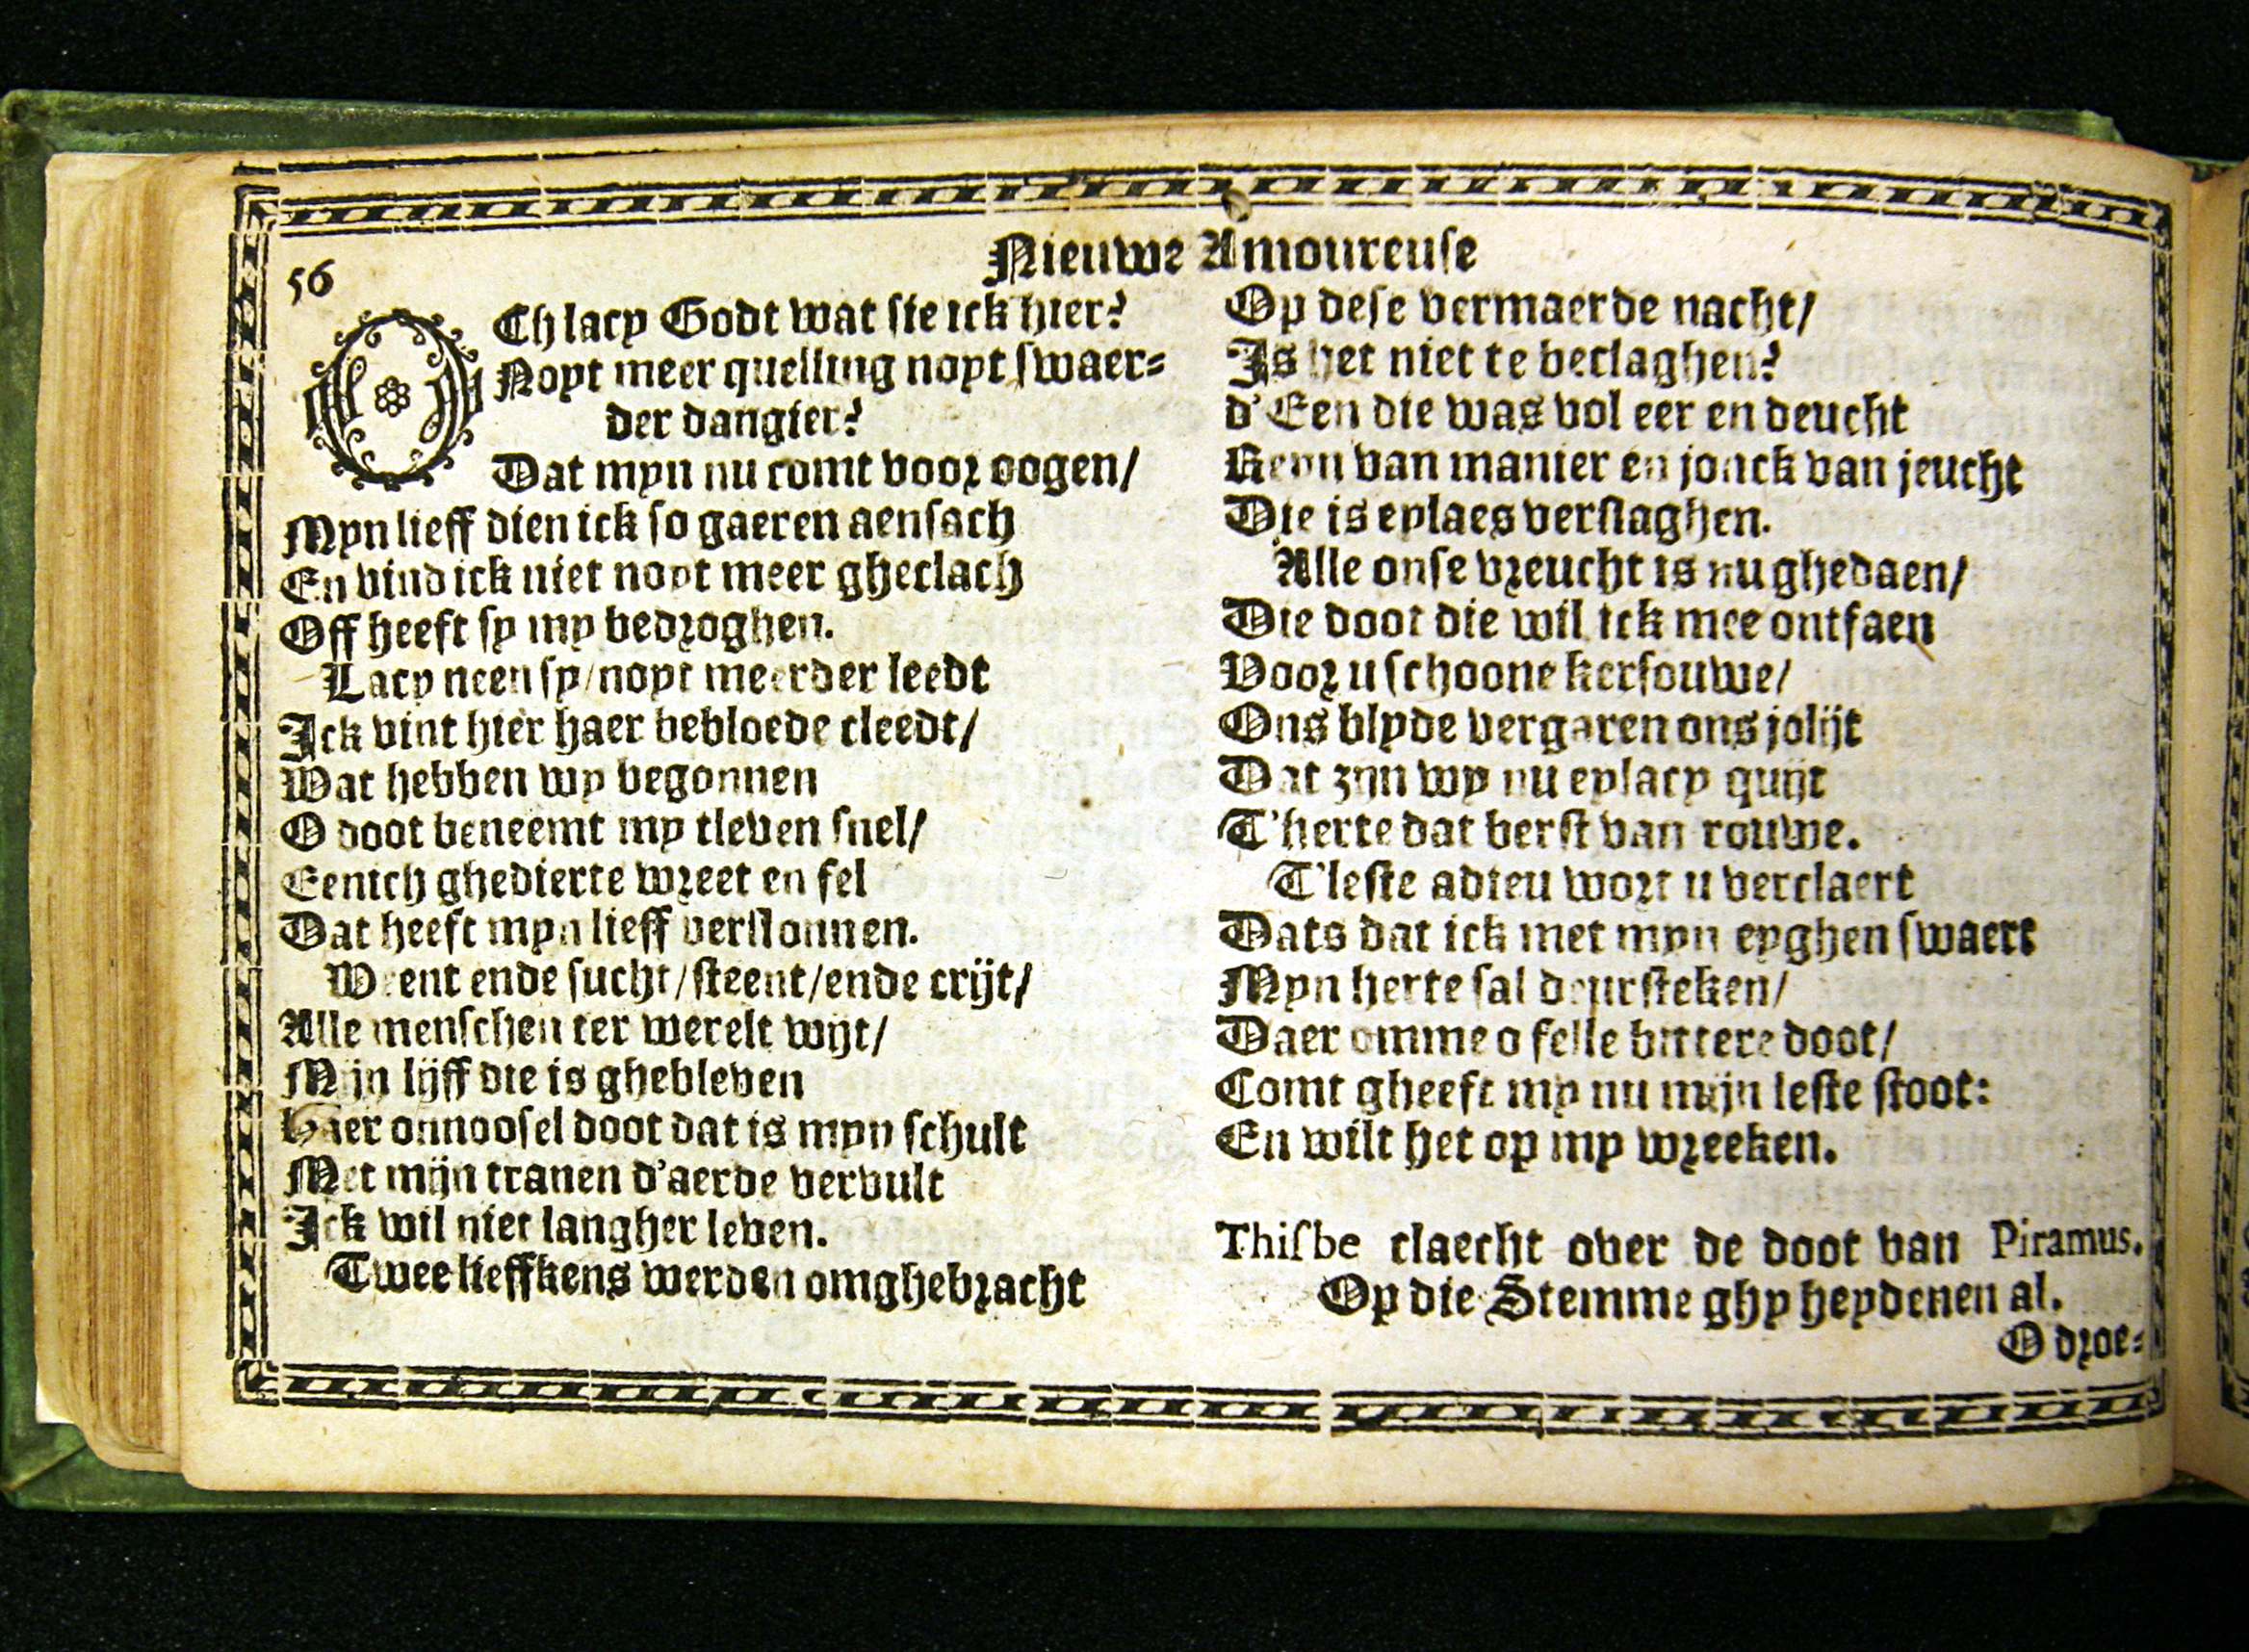 Nieuwe Amoureuse
56
OCh lacy Godt wat sie ick hier?
Noyt meer quelling noyt swaer-
der dangier?
Dat myn nu comt voor oogen/
Myn lieff dien ick so gaeren aensach
En vind ick niet noyt meer gheclach
Off heeft sy my bedroghen.
Lacy neen sy/noyt meerder leedt
Ick vint hier haer bebloede cleedt/
Wat hebben wy begonnen
O doot beneemt my tleven snel/
Eenich ghedierte wreet en fel
Dat heeft myn lieff verslonnen.
Weent ende sucht/steent/ende crijt/
Alle menschen ter werelt wijt/
Mijn lijff die is ghebleven
Haer onnoosel doot dat is myn schult
Met mijn tranen d'aerde vervult
Ick wil niet langher leven.
Twee lieffkens werden omghebracht
Op dese vermaerde nacht/
Is het niet te beclaghen?
d'Een die was vol eer en deucht
Reyn van manier en jonck van jeucht
Die is eylaes verslaghen.
Alle onse vreucht is nu ghedaen/
Die doot die wil ick mee ontfaen
Voor u schoone kersouwe/
Ons blyde vergaren ons jolijt
Dat zijn wy nu eylacy quijt
T'herte dat berst van rouwe.
T'leste adieu wort u verclaert
Dats dat ick met myn eyghen swaert
Myn herte sal deursteken/
Daer omme o felle bittere doot/
Comt gheeft my nu mijn leste stoot:
En wilt het op my wreeken.
Thisbe claecht over de doot van Piramus.
Op die Stemme ghy heydenen al.
O droe-